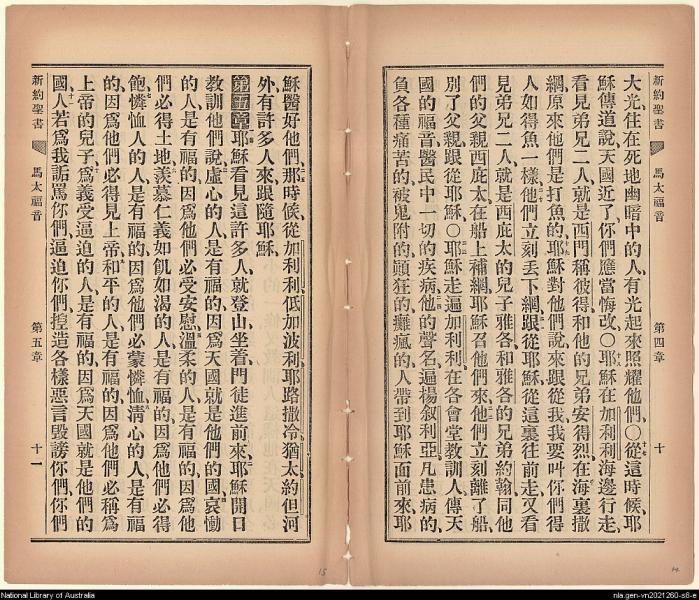 新約聖書 馬太福音 第四章 十
大光、住在死地幽暗中的人、有光起來照耀他們、○從這時候耶
穌傳道說、天國近了、你們應當悔改、○耶穌在加利利海邊行走、
看見弟兄二人、就是西門稱彼得、和他的兄弟安得烈、在海裏撒
網、原來他們是打魚的、耶穌對他們說、來跟從我、我要叫你們得
人如得魚一樣、他們立刻丟下網、跟從耶穌、從這裏往前走、又看
見弟兄二人、就是西庇太的兒子雅各、和雅各的兄弟約翰、同他
們的父親西庇太在船上補網、耶穌召他們來、他們立刻離了船、
別了父親、跟從耶穌、○耶穌走遍加利利、在各會堂教訓人、傳天
國的福音、醫民中一切的疾病、他的聲名遍揚叙利亞、凡患病的、
負各種痛苦的、被鬼附的、顚狂的、癱瘋的、人帶到耶穌面前來、耶
穌醫好他們、那時候從加利利低加波利耶路撒冷猶太約但河
外、有許多人來跟隨耶穌、
第五章 耶穌看見這許多人、就登山坐着、門徒進前來、耶穌開口
教訓他們說、虛心的人是有福的、因爲天國就是他們的國、哀慟
的人是有福的、因爲他們必受安慰、溫柔的人是有福的、因爲他
們必得土地、羨慕仁義如飢如渴的人是有福的、因爲他們必得
飽、憐恤人的人是有福的、因爲他們必蒙憐恤、清心的人是有福
的、因爲他們必得見上帝、和平的人是有福的、因爲他們必稱爲
上帝的兒子、爲義受逼迫的人是有福的、因爲天國就是他們的
國、人若爲我詬罵你們、逼迫你們、揑造各樣惡言毀謗你們、你們
新約聖書 馬太福音 第五章 十一
15
14
National Library of Australia
nla.gen-vn2021260-s8-e